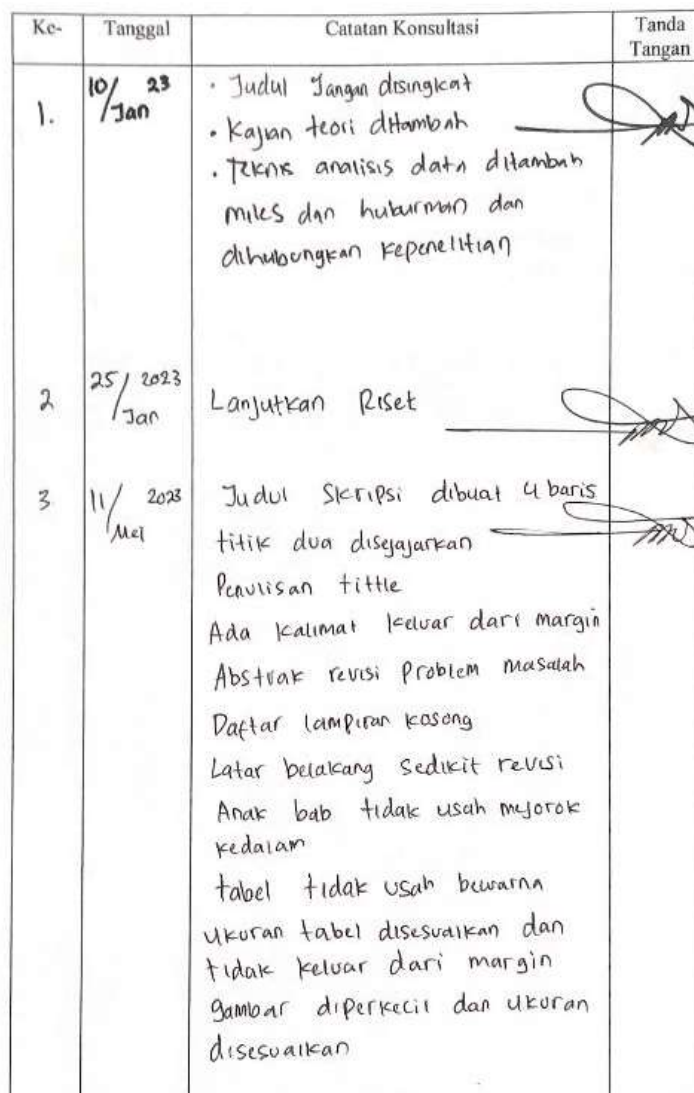 Ke- Tanggal Catatan Konsultasi Tanda Tangan
1. 10/Jan 23 • Judul Jangan disingkat
• Kajian teori ditambah
• Teknis analisis data ditambah
miles dan huburman dan
dihubungkan kepenelitian
2 25/Jan 2023 Lanjutkan Riset
3 11/Mei 2023 Judul Skripsi dibuat 4 baris
titik dua disejajarkan
Penulisan tittle
Ada kalimat keluar dari margin
Abstrak revisi problem masalah
Daftar lampiran kosong
Latar belakang sedikit revisi
Anak bab tidak usah mejorok
kedalam
tabel tidak usah bewarna
ukuran tabel disesuaikan dan
tidak keluar dari margin
gambar diperkecil dan ukuran
disesuaikan